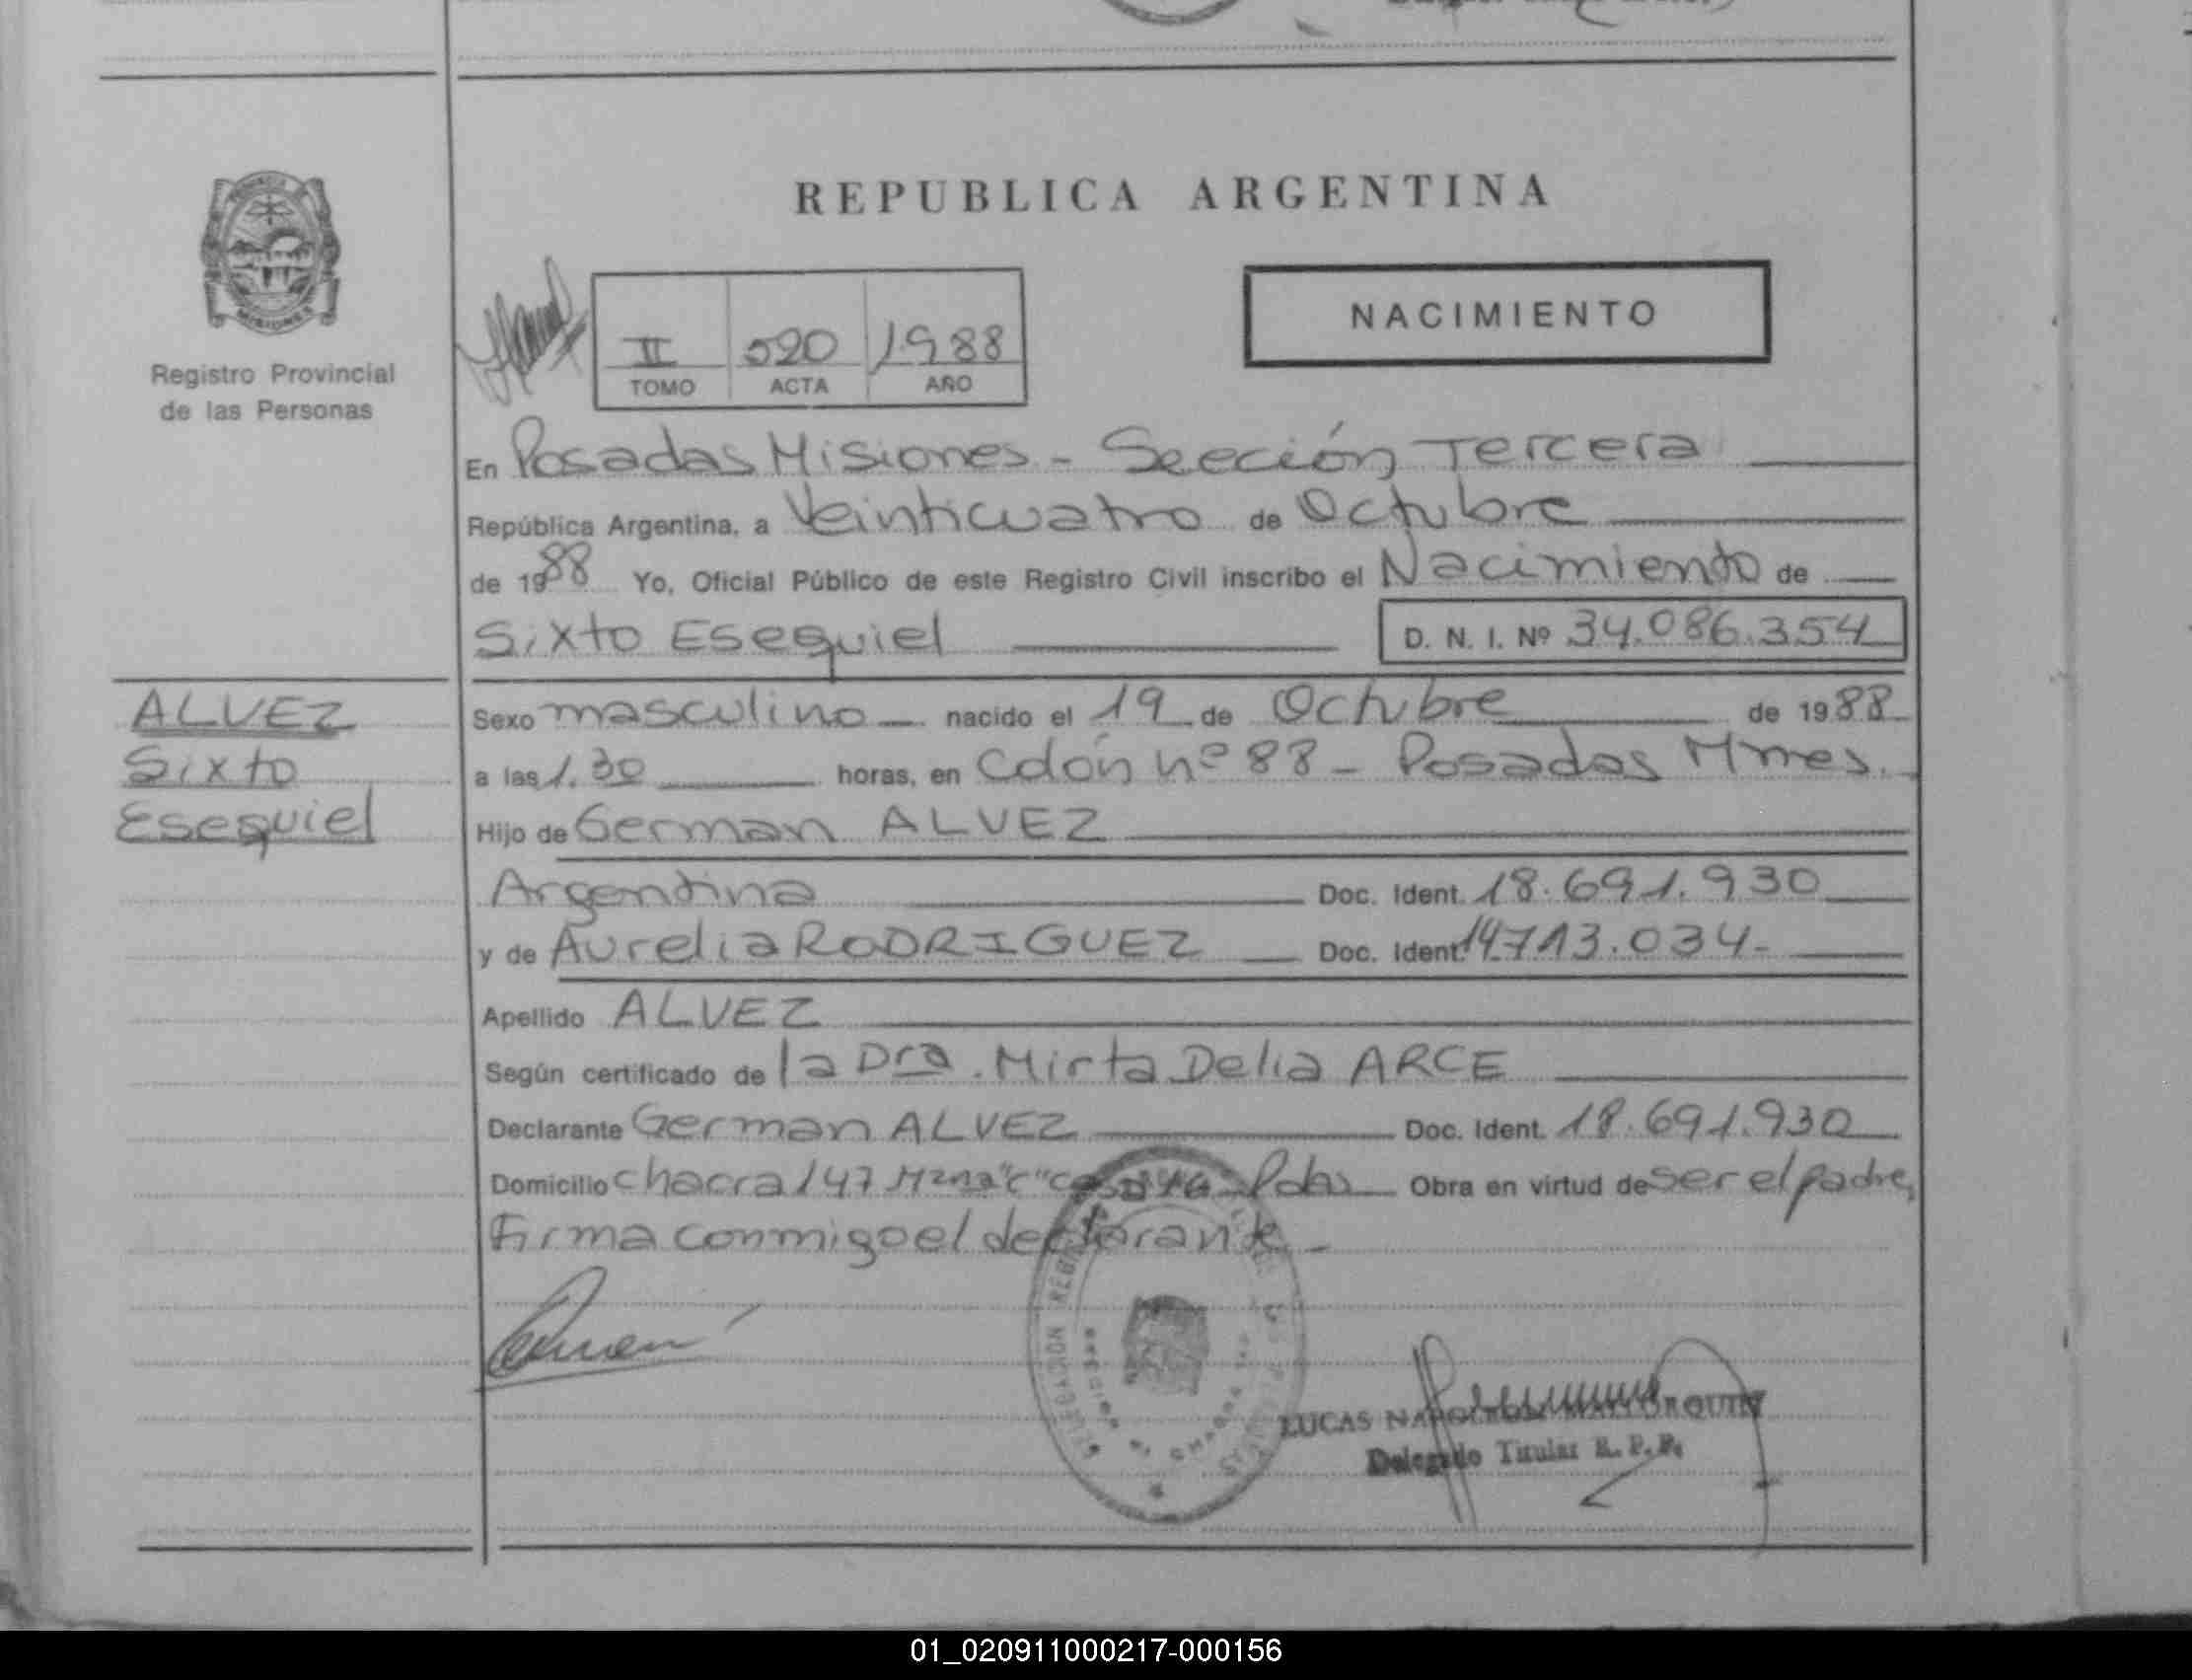 REPUBLICA ARGENTINA
NACIMIENTO
II 520 1988
TOMO ACTA AÑO
Registro Provincial
de las Personas
MISIONES
En Posadas Misiones - Sección Tercera
República Argentina, a Veinticuatro de Octubre
de 1988 Yo, Oficial Público de este Registro Civil inscribo el Nacimiento de
Sixto Esequiel D. N. I. Nº 34.086.354
ALVEZ
Sixto
Esequiel
Sexo masculino nacido el 19 de Octubre de 1988
a las 1.30 horas, en Colón nº 88 - Posadas Mnes.
Hijo de German ALVEZ
Argentina Doc. Ident. 18.691.930
y de Aurelia RODRIGUEZ Doc. Ident. 14713.034-
Apellido ALVEZ
Según certificado de la Dra. Mirta Delia ARCE
Declarante German ALVEZ Doc. Ident. 18.691.930
Domicilio chacra 147 Mzna "C" casa Pdas Obra en virtud de ser el padre,
Firma conmigo el declarante -
LUCAS
Delegado Titular R. P. P.
01_020911000217-000156